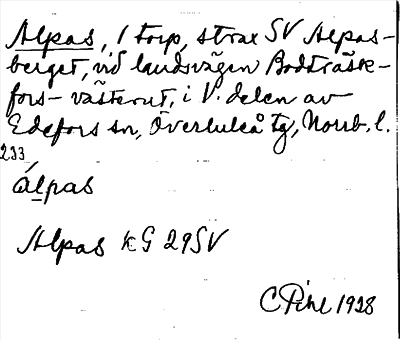 Alpas, 1 torp, strax SV Alpas-
berget, vid landsvägen Bodträsk-
fors – västerut, i V. delen av
Edefors sn, Överluleå tg, Norrb. l.
233
álpas
Alpas kG 29SV
C Pihl 1928